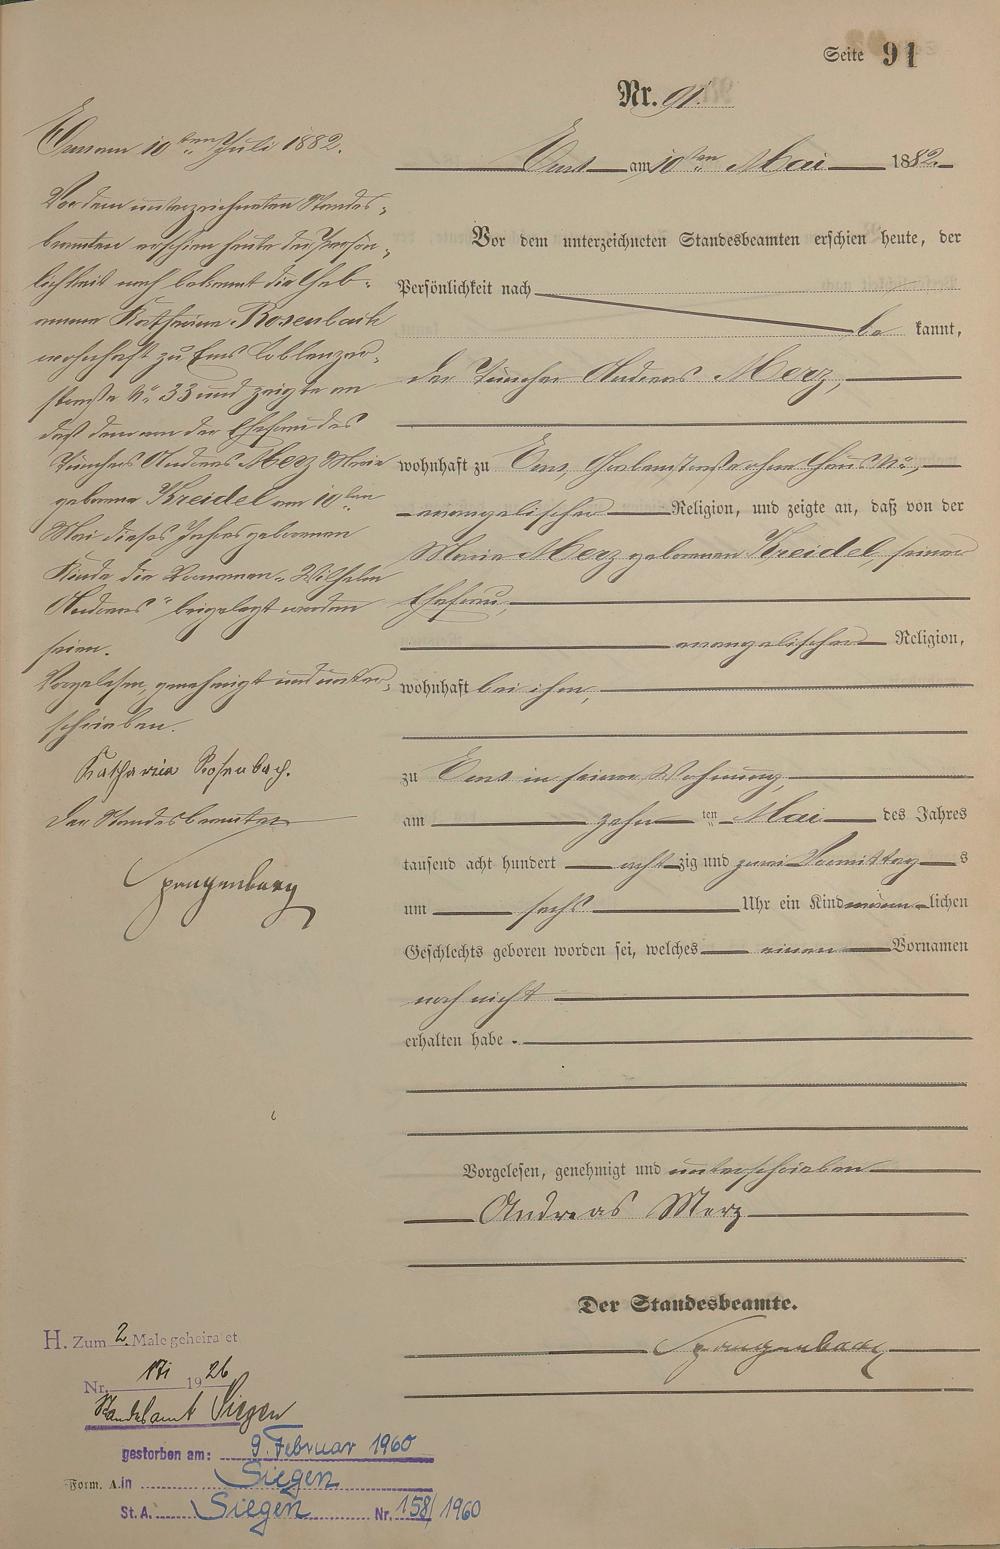 Seite 91
Nr. 91.
Ems am 10ten Mai 1882.
Vor dem unterzeichneten Standesbeamten erschien heute, der
Persönlichkeit nach
be kannt,
der Tüncher Andreas Merz,
wohnhaft zu Ems, ohne Haus No.,
evangelischer Religion, und zeigte an, daß von der
Marie Merz geborenen Kreidel, seiner
Ehefrau,
evangelischer Religion,
wohnhaft bei ihm,
zu Ems in seiner Wohnung,
am zehn ten Mai des Jahres
tausend acht hundert acht zig und zwei Vormittag s
um sechs Uhr ein Kind männ lichen
Geschlechts geboren worden sei, welches einen Vornamen
noch nicht
erhalten habe.
Vorgelesen, genehmigt und unterschrieben
Andreas Merz
Der Standesbeamte.
Spangenberg
Ems am 10ten Juli 1882.
Vor dem unterzeichneten Standes-
beamten erschien heute der Persön-
lichkeit nach bekannt die Heb-
amme Katharina Rosenbach
wohnhaft zu Ems Coblenzer-
straße No. 33 und zeigte an
daß dem von der Ehefrau des
Tünchers Andreas Merz Marie
geborene Kreidel am 10ten
Mai dieses Jahres geborenen
Kinde die Vornamen "Wilhelm
Andreas" beigelegt worden
seien.
Vorgelesen, genehmigt und unter-
schrieben.
Katharina Rosenbach.
Der Standesbeamte
Spangenberg
H. Zum 2. Male geheiratet
Nr. 1926
Standesamt Siegen
gestorben am: 9. Februar 1960
Form. A. in Siegen
St. A. Siegen Nr. 158/1960